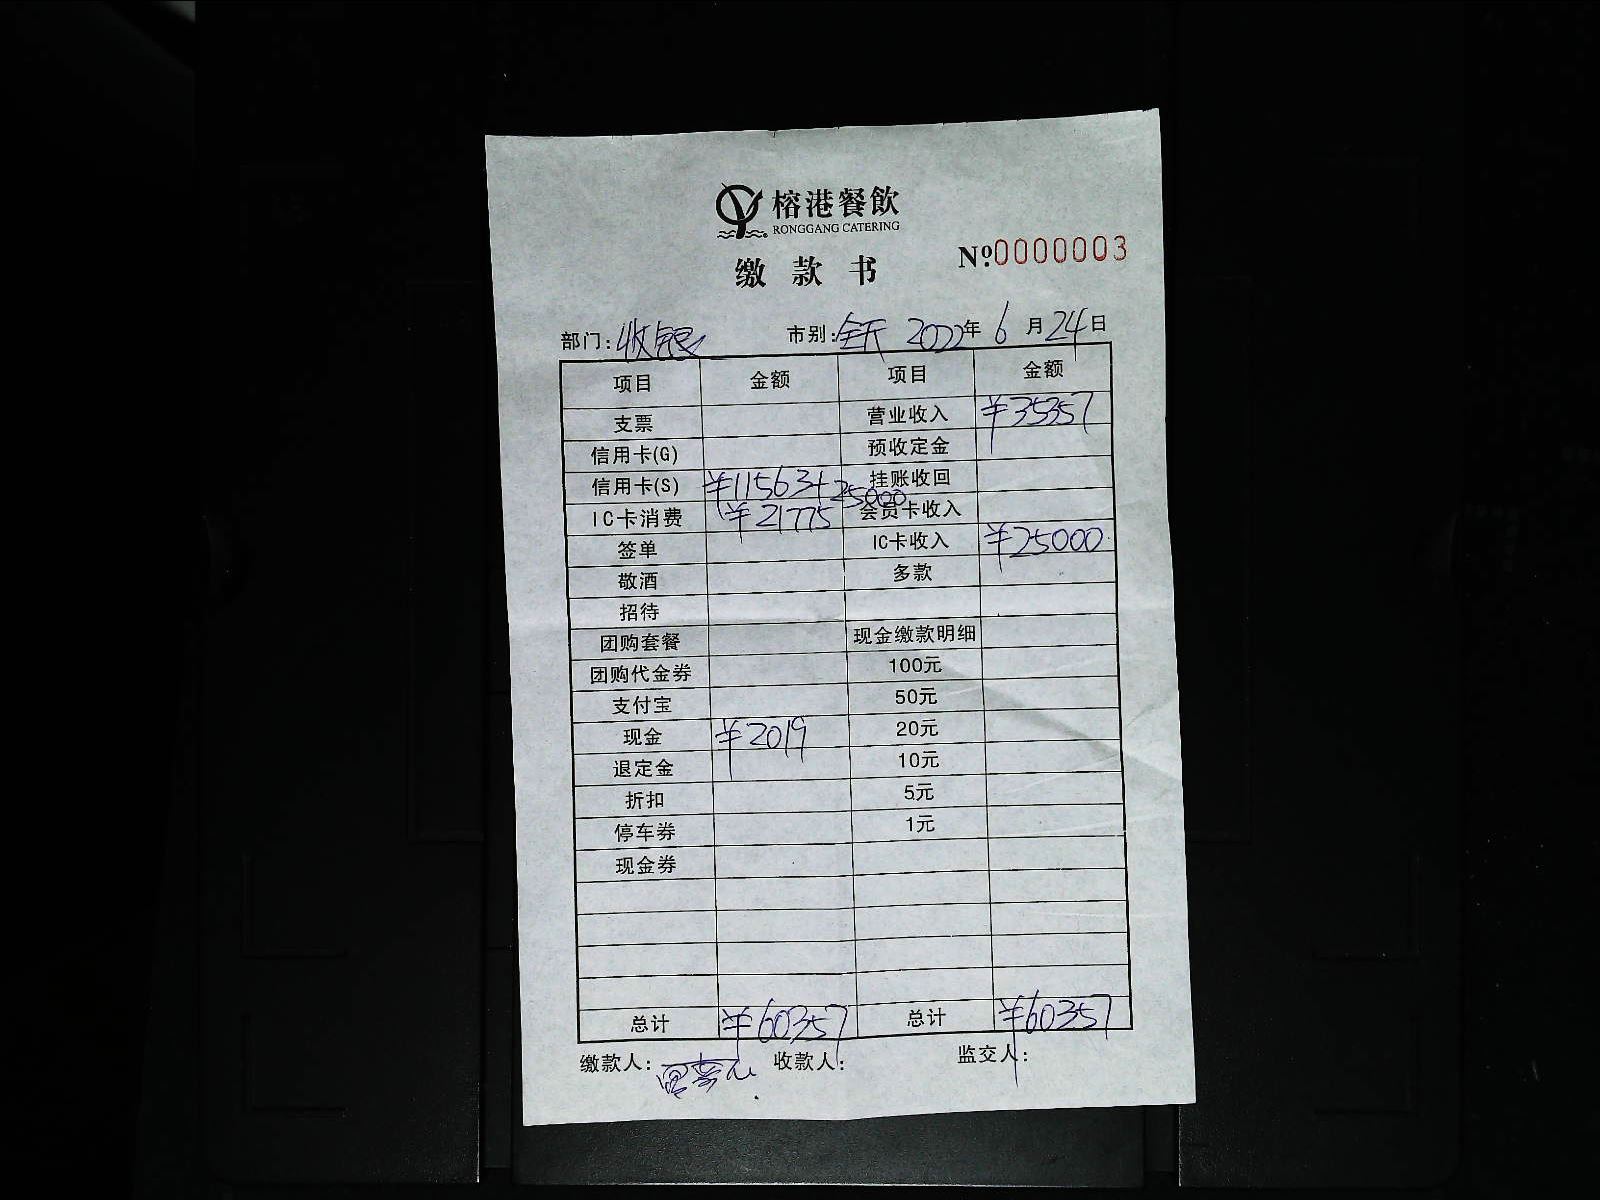 榕港餐飲
RONGGANG CATERING
缴款书
№0000003
部门：收银 市别：全天 2022年6月24日
项目 金额 项目 金额
支票 营业收入 ¥35357
信用卡(G) 预收定金
信用卡(S) ¥11563+25000 挂账收回
IC卡消费 ¥21775 会员卡收入
签单 IC卡收入 ¥25000
敬酒 多款
招待
团购套餐 现金缴款明细
团购代金券 100元
支付宝 50元
现金 ¥2019 20元
退定金 10元
折扣 5元
停车券 1元
现金券
总计 ¥60357 总计 ¥60357
缴款人： 收款人： 监交人：